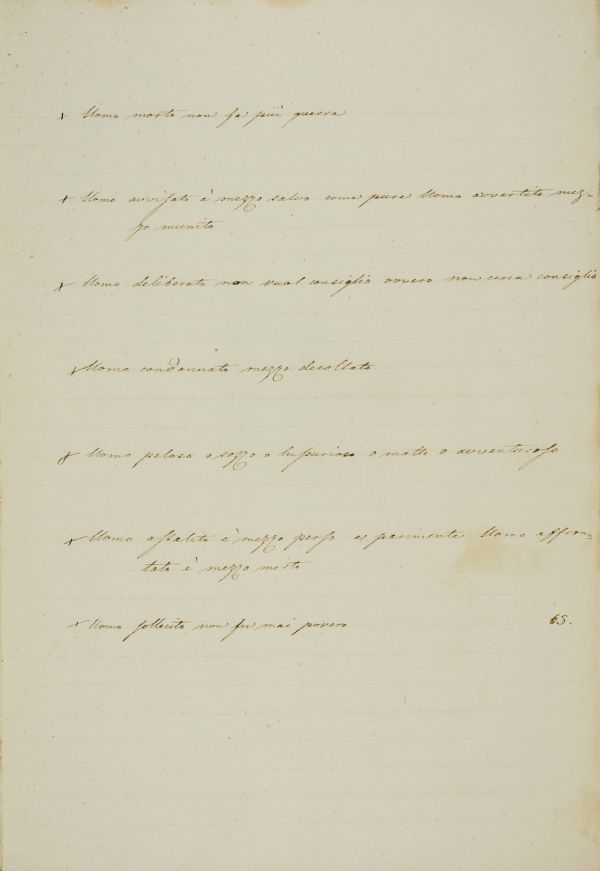 x Uomo morto non fa più guerra
x Uomo avvisato è mezzo salvo come pure Uomo avvertito mez-
zo munito
x Uomo deliberato non vuol consiglio ovvero non cerca consiglio
x Uomo condannato mezzo decollato
x Uomo peloso o sozzo o lussurioso o matto o avventuroso
x Uomo assalito è mezzo perso e parimente Uomo affron-
tato è mezzo morto
x Uomo sollecito non fu mai povero 65.